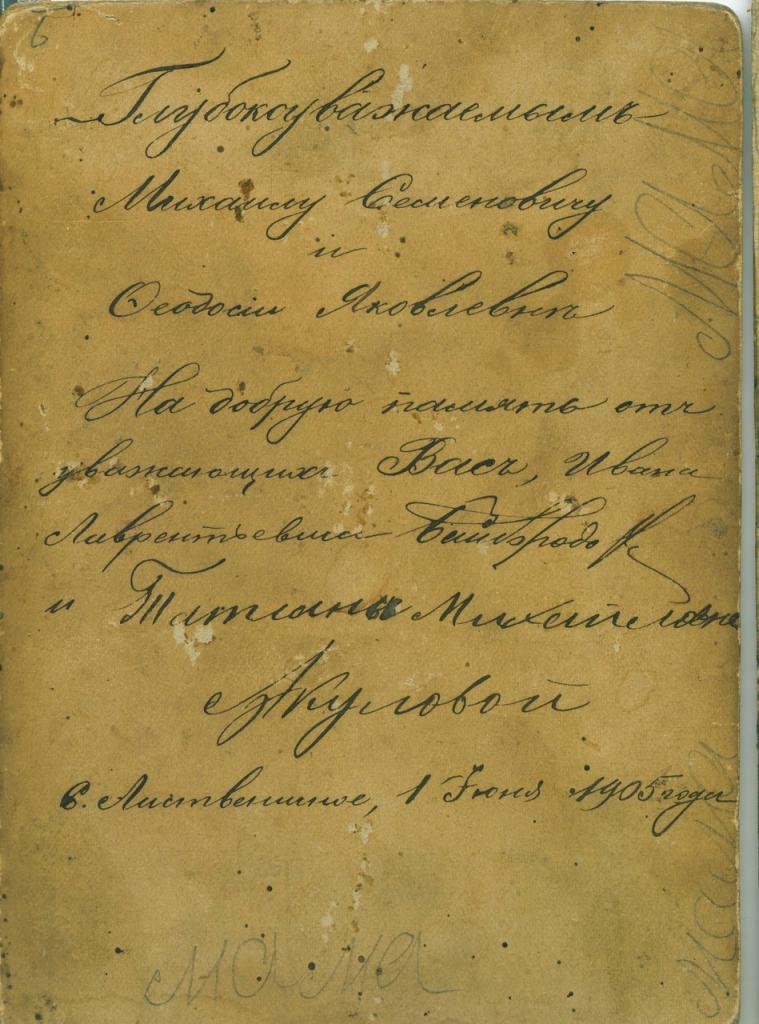 Глубокоуважаемымъ
Михаилу Семеновичу
и
Ѳеодосіи Яковлевнѣ
На добрую память отъ
уважающихъ Васъ, Ивана
Лаврентьевича
и Татіаны Михайловны
Жкуловой
с. Лиственичное, 1 Іюня 1905 года
мама
мама
мама